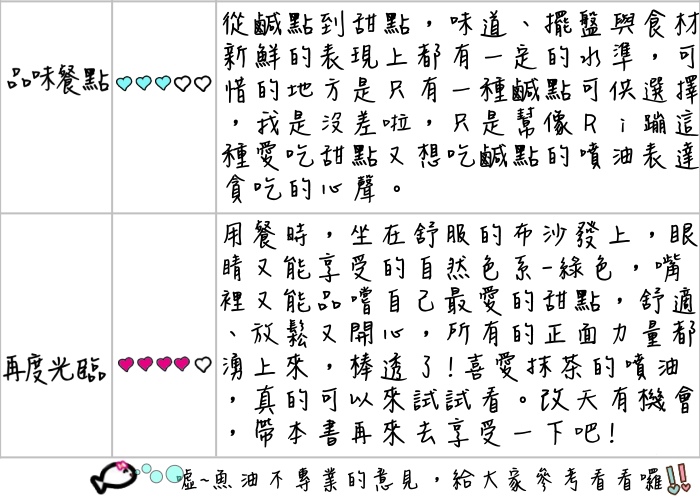 品味餐點
從鹹點到甜點，味道、擺盤與食材
新鮮的表現上都有一定的水準，可
惜的地方是只有一種鹹點可供選擇
，我是沒差啦，只是幫像Ｒｉ蹦這
種愛吃甜點又想吃鹹點的噴油表達
貪吃的心聲。
再度光臨
用餐時，坐在舒服的布沙發上，眼
睛又能享受的自然色系-綠色，嘴
裡又能品嚐自己最愛的甜點，舒適
、放鬆又開心，所有的正面力量都
湧上來，棒透了!喜愛抹茶的噴油
，真的可以來試試看。改天有機會
，帶本書再來去享受一下吧!
噓~魚油不專業的意見，給大家參考看看囉!!